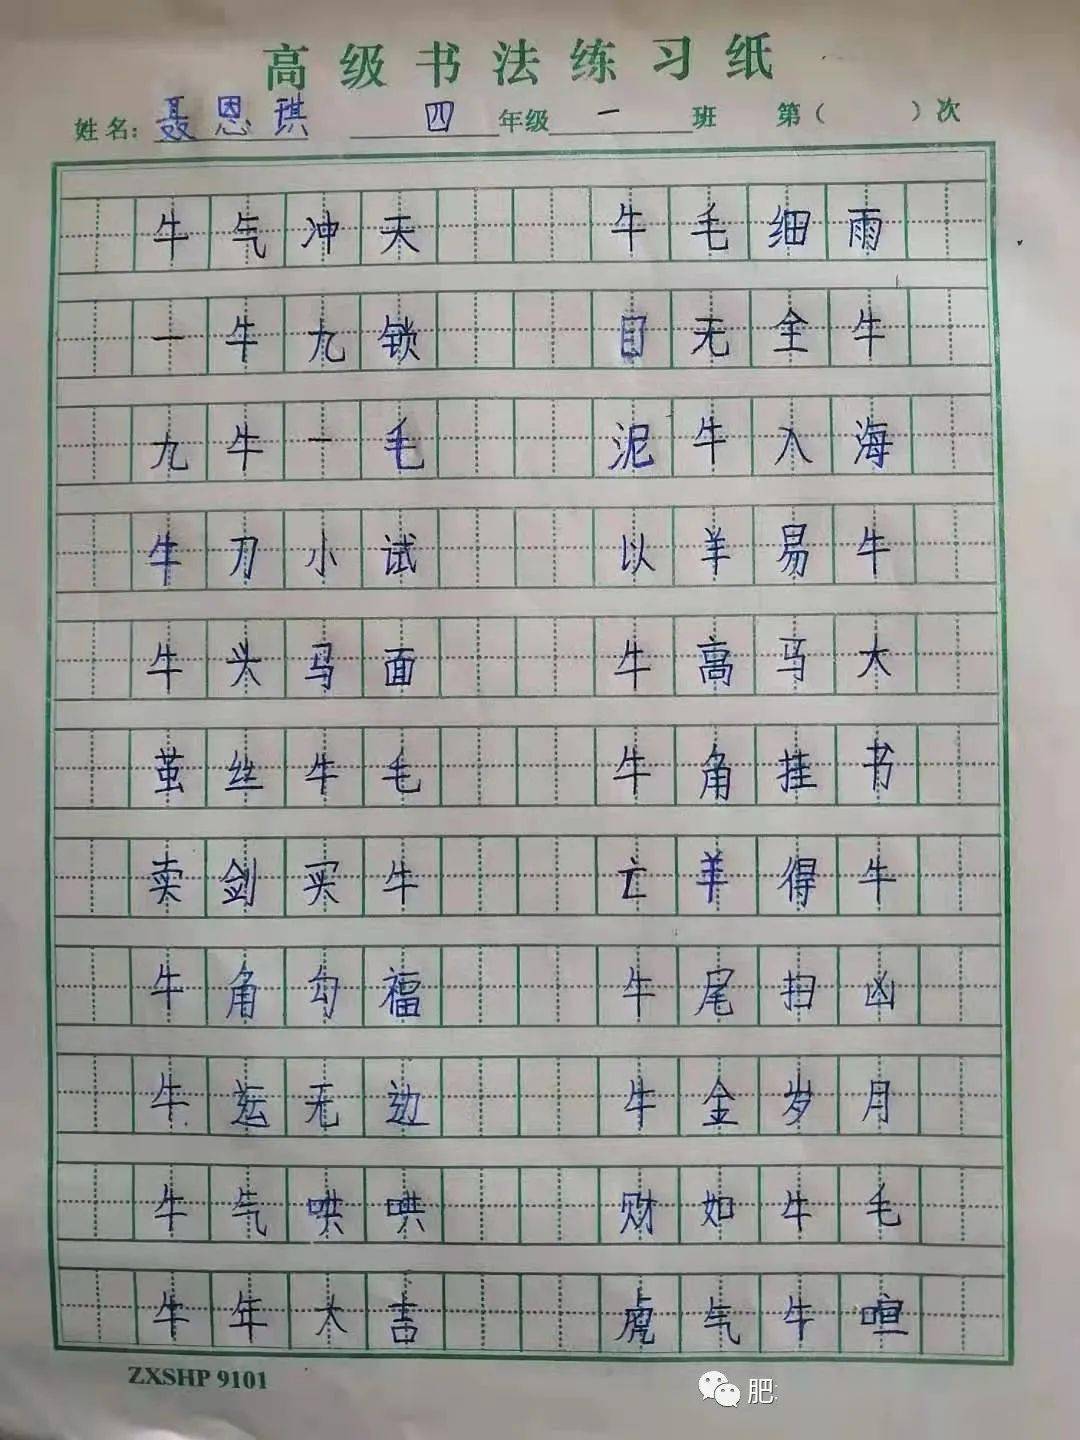 高级书法练习纸
姓名: 聂恩琪 四年级 一班 第( )次
牛气冲天 牛毛细雨
一牛九锁 目无全牛
九牛一毛 泥牛入海
牛刀小试 以羊易牛
牛头马面 牛高马大
茧丝牛毛 牛角挂书
卖剑买牛 亡羊得牛
牛角勾福 牛尾扫凶
牛运无边 牛金岁月
牛气哄哄 财如牛毛
牛年大吉 虎气牛喧
ZXSHP 9101
肥